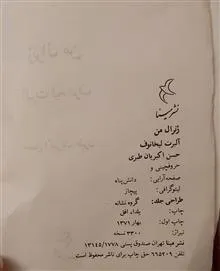 نشر مینا
ژنرال من
آلبرت لیخانوف
حسن اکبریان طبری
حروفچینی و
صفحه‌آرایی: دانش‌پناه
لیتوگرافی: پیچاز
طراحی جلد: گروه نشانه
چاپ: یلدا، افق
چاپ اول: بهار ۱۳۷۱
تیراژ: ۳۳۰۰ نسخه
نشر مینا تهران صندوق پستی ۱۷۷۸/۱۳۱۴۵
تلفن ۶۶۵۲۰۹ حق چاپ برای ناشر محفوظ است.